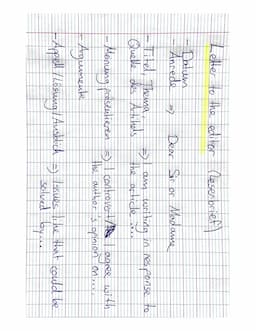 Letter to the editor (Leserbrief)
- Datum
- Anrede => Dear Sir or Madame
- Titel, Thema, => I am writing in response to
Quelle des Artikels the article ...
- Meinung präsentieren => I controvert / I agree with
the author's opinion on ...
- Argumente
- Appell / Lösung / Ausblick => Issues like that could be
solved by ...